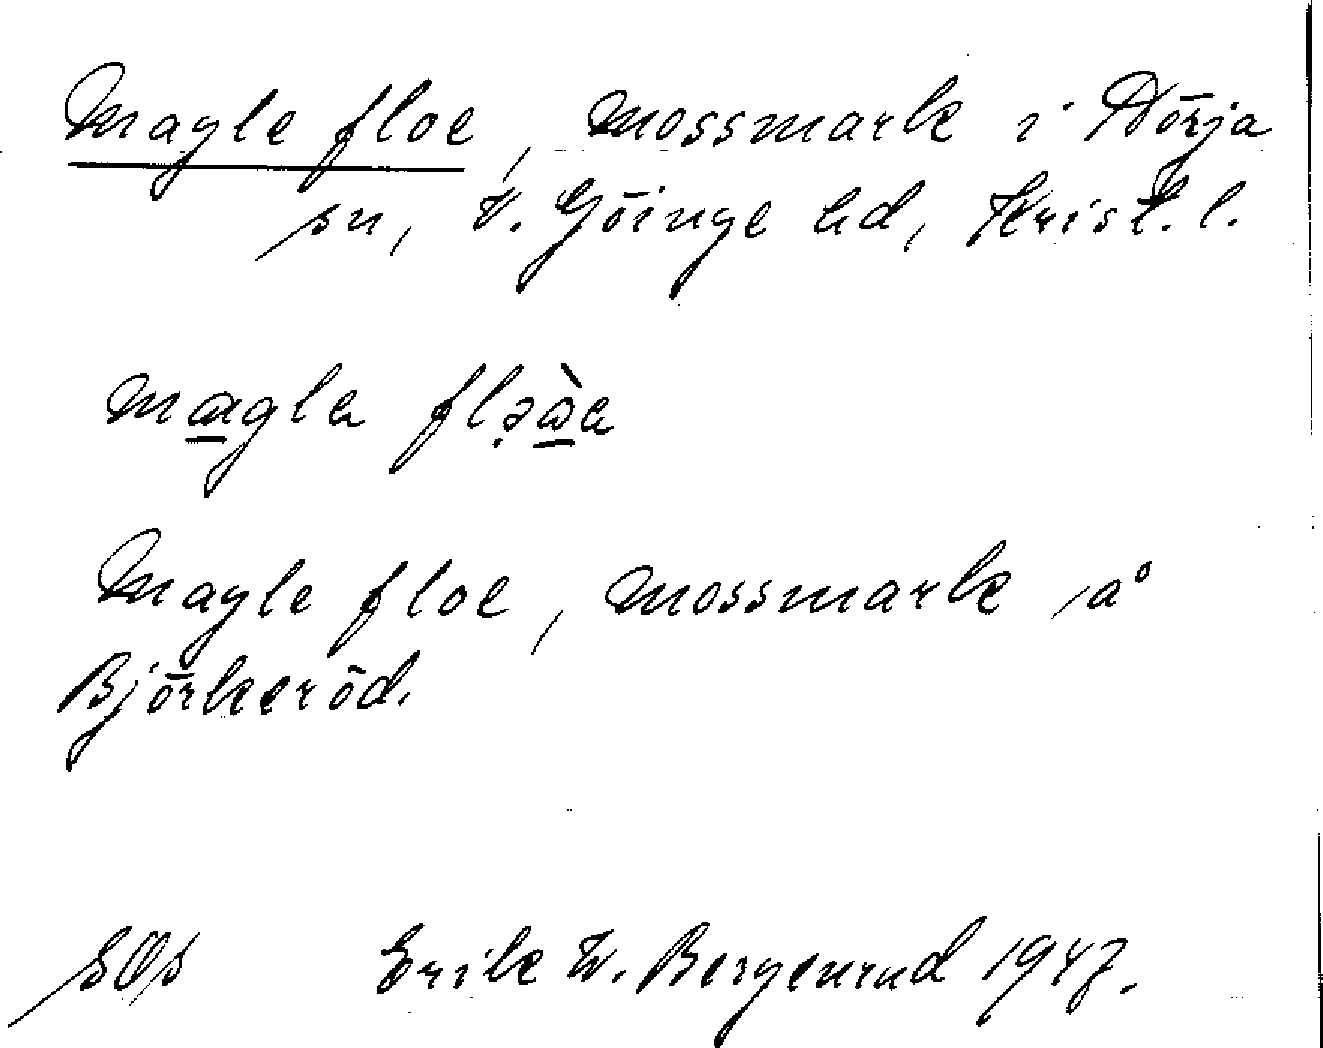 Magle floe, mossmark i Nörja
sn, V. Göinge hd, Krist. l.
magla
Magle floe, mossmark på
Björkeröd.
SOS Erik W. Bergenrud 1947.